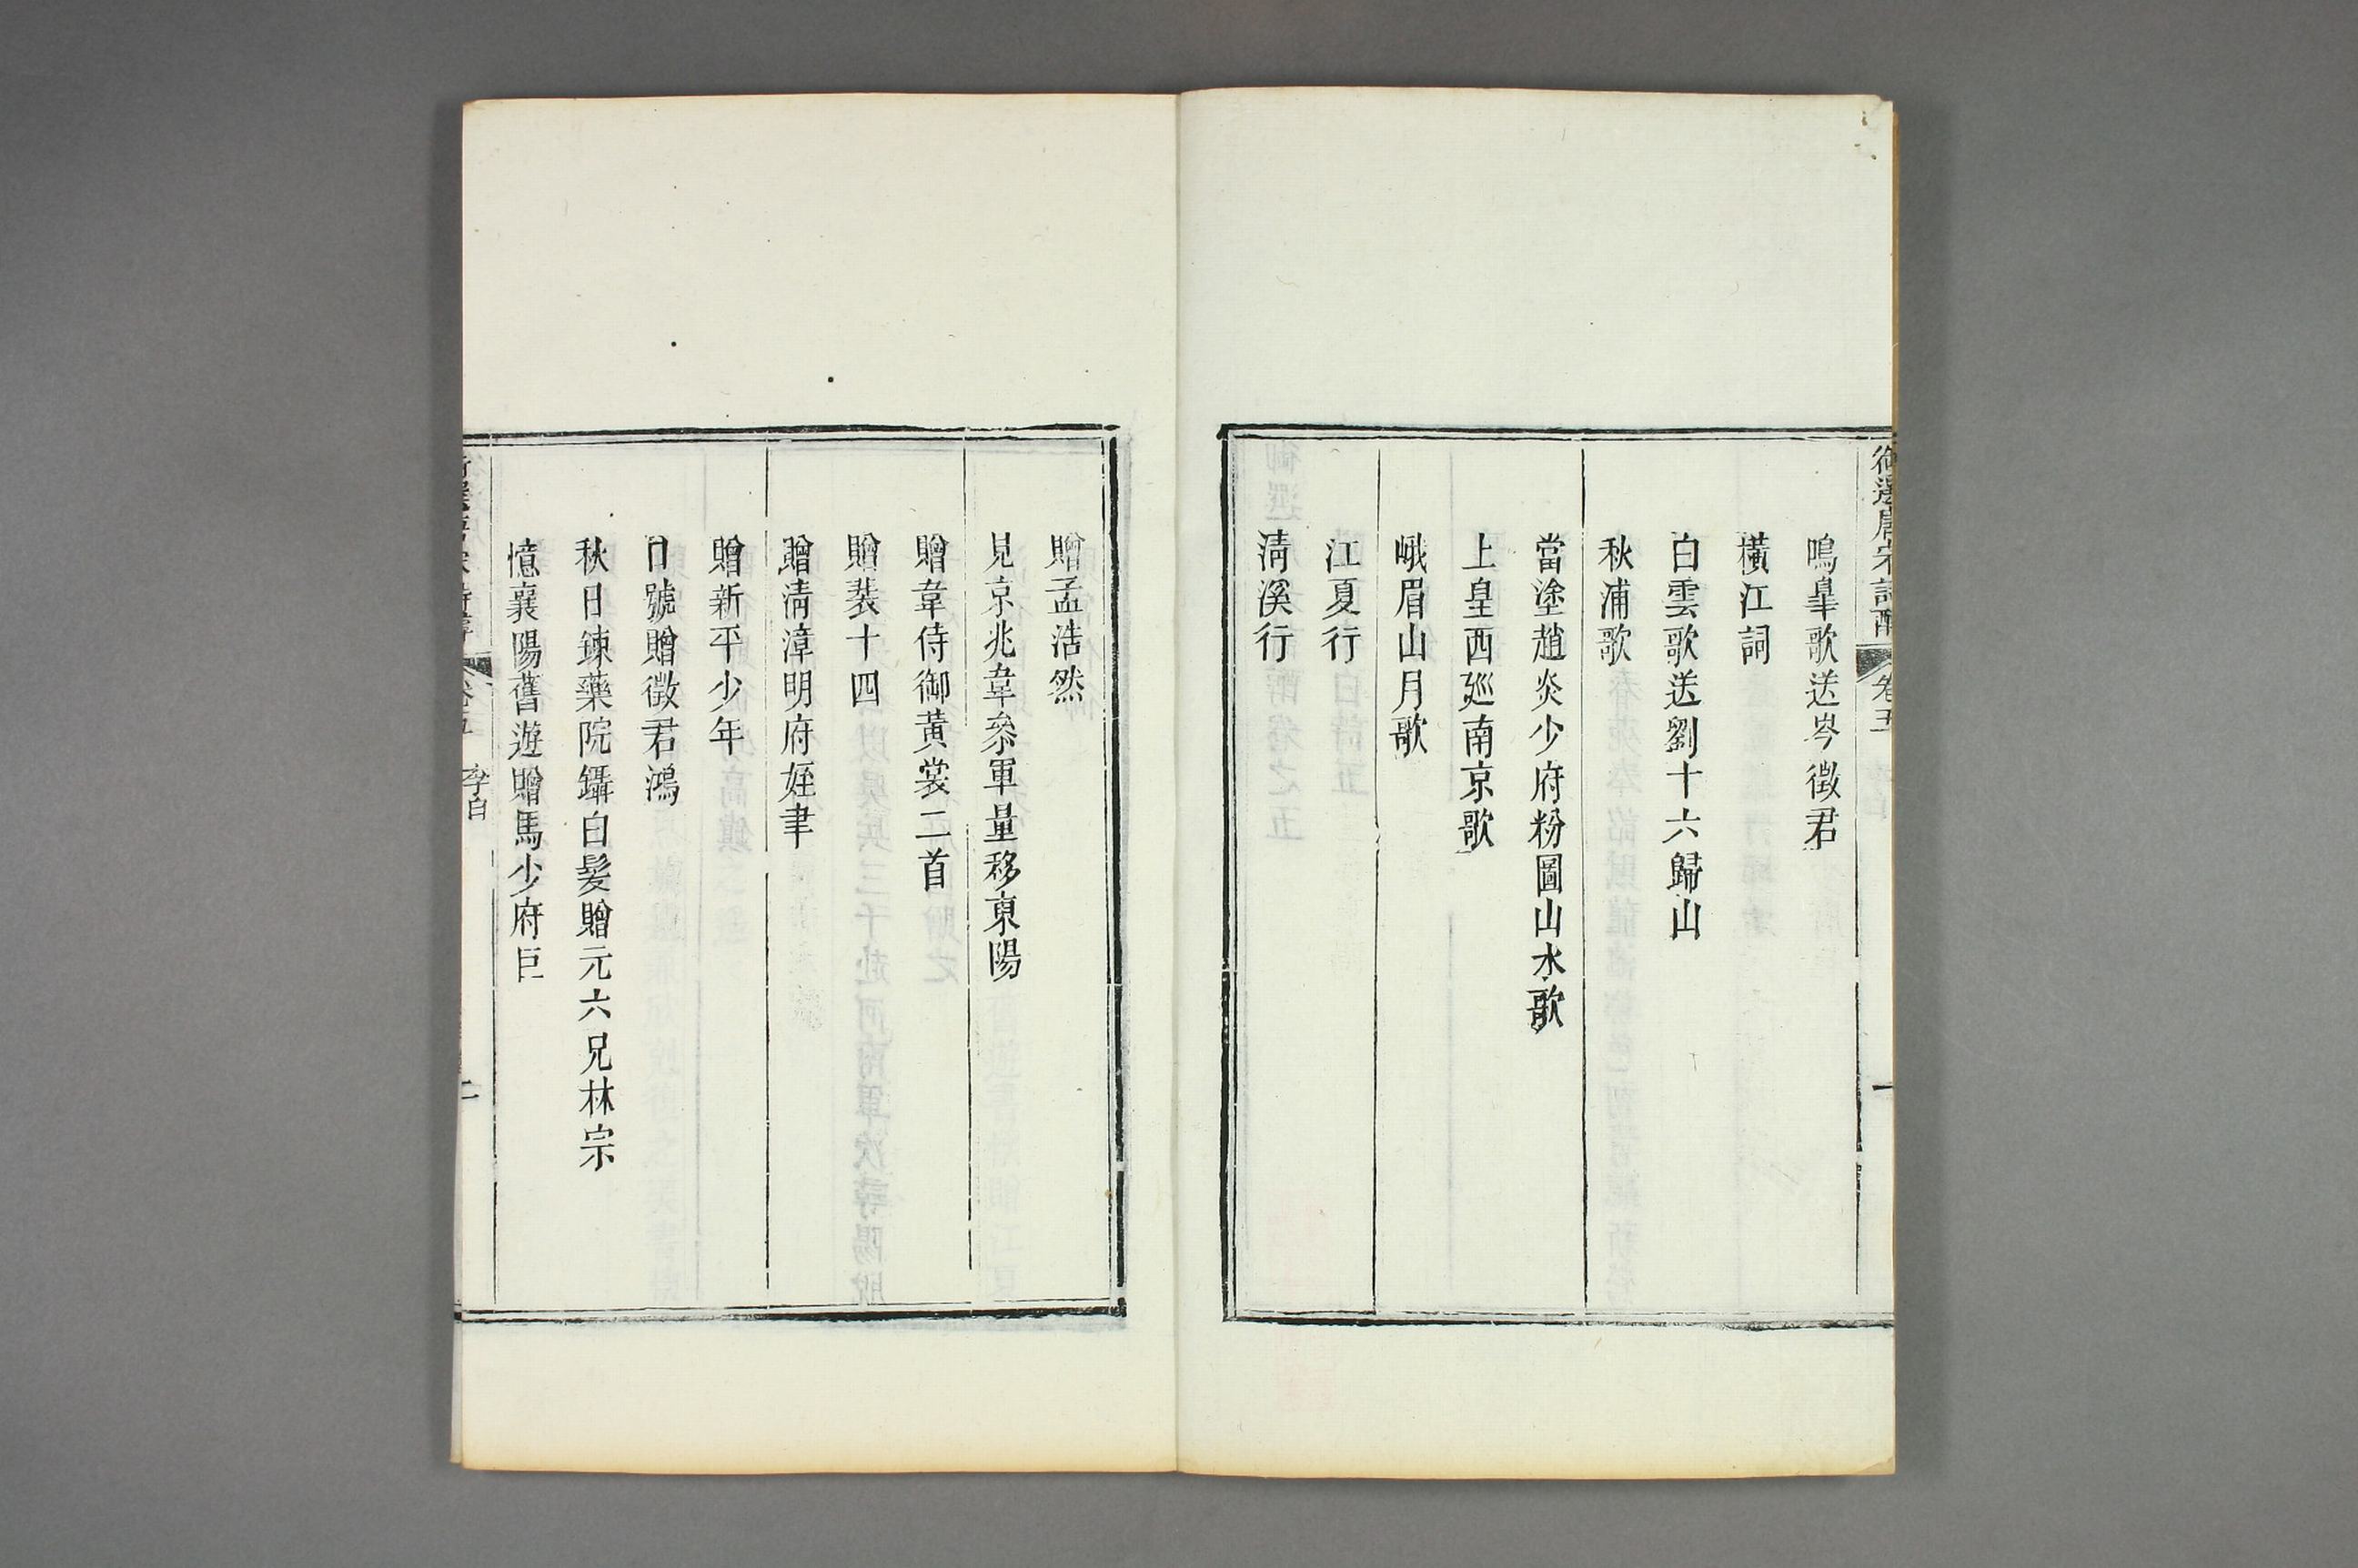 御選唐宋詩醇 卷五 一
鳴臯歌送岑徵君
橫江詞
白雲歌送劉十六歸山
秋浦歌
當塗趙炎少府粉圖山水歌
上皇西廵南京歌
峨眉山月歌
江夏行
淸溪行
贈孟浩然
見京兆韋叅軍量移東陽
贈韋侍御黃裳二首
贈裴十四
贈淸漳明府姪聿
贈新平少年
口號贈徵君鴻
秋日鍊藥院鑷白髮贈元六兄林宗
憶襄陽舊遊贈馬少府巨
卷五 李白 二